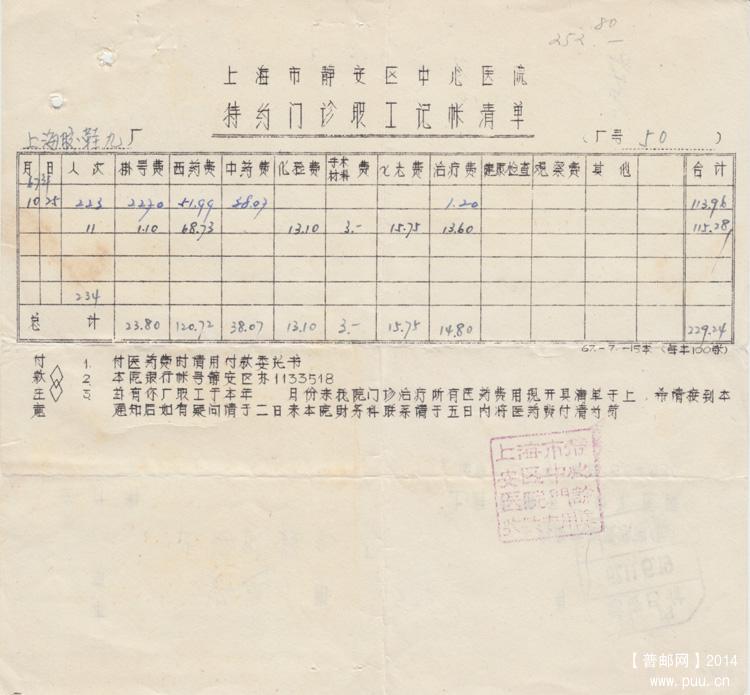 252.80
上海市静安区中心医院
特约门诊职工记帐清单
上海胶鞋九厂 （厂号 50 ）
月 日 人次 掛号费 西药费 中药费 化验费 手术材料费 X光费 治疗费 健康检查 观察费 其他 合计
10 25 223 22.70 51.99 38.07 1.20 113.96
11 1.10 68.73 13.10 3.- 15.75 13.60 115.28
234
总计 23.80 120.72 38.07 13.10 3.- 15.75 14.80 229.24
67.-7.-15本（每本100张）
付款注意
1. 付医药费时请用付款委托书
2. 本院银行帐号静安区办1133518
3. 兹有你厂职工于本年 月份来我院门诊治疗所有医药费用现开具清单于上，希请接到本
通知后如有疑问请于二日来本院财务科联系请于五日内将医药费付清为荷
上海市静
安区中心
医院門診
【普邮网】2014
www.puu.cn